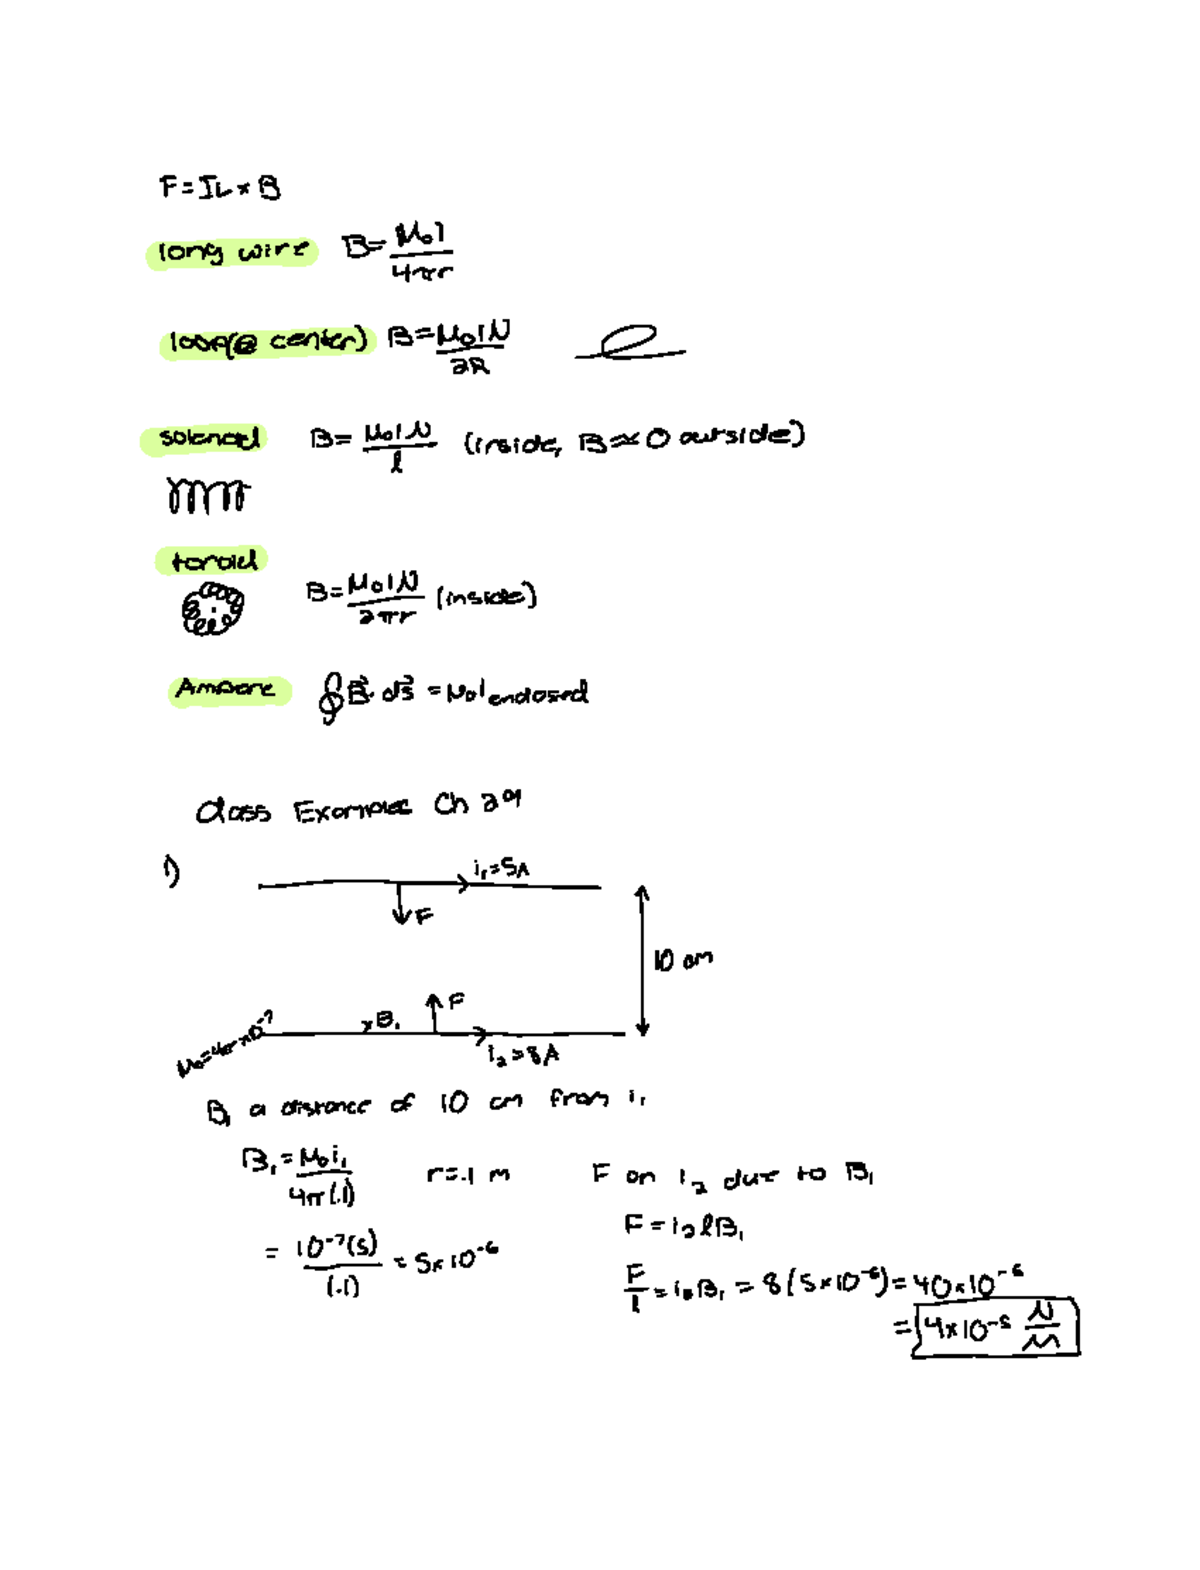 F = IL × B
long wire B = μ₀I / 4πr
loop(@ center) B = μ₀IN / 2R
solenoid B = μ₀IN / l (inside, B ≈ 0 outside)
toroid
B = μ₀IN / 2πr (inside)
Ampere ∮ B⃗ · ds⃗ = μ₀I enclosed
Class Examples Ch 29
1)
i₁ = 5A
F
10 cm
F
× B₁
μ₀ = 4π × 10⁻⁷
i₂ = 8A
B₁ a distance of 10 cm from i₁
B₁ = μ₀i₁ / 4π(.1) r = .1 m
= 10⁻⁷(5) / (.1) = 5 × 10⁻⁶
F on i₂ due to B₁
F = i₂lB₁
F / l = i₂B₁ = 8(5 × 10⁻⁶) = 40 × 10⁻⁶
= 4 × 10⁻⁵ N / M